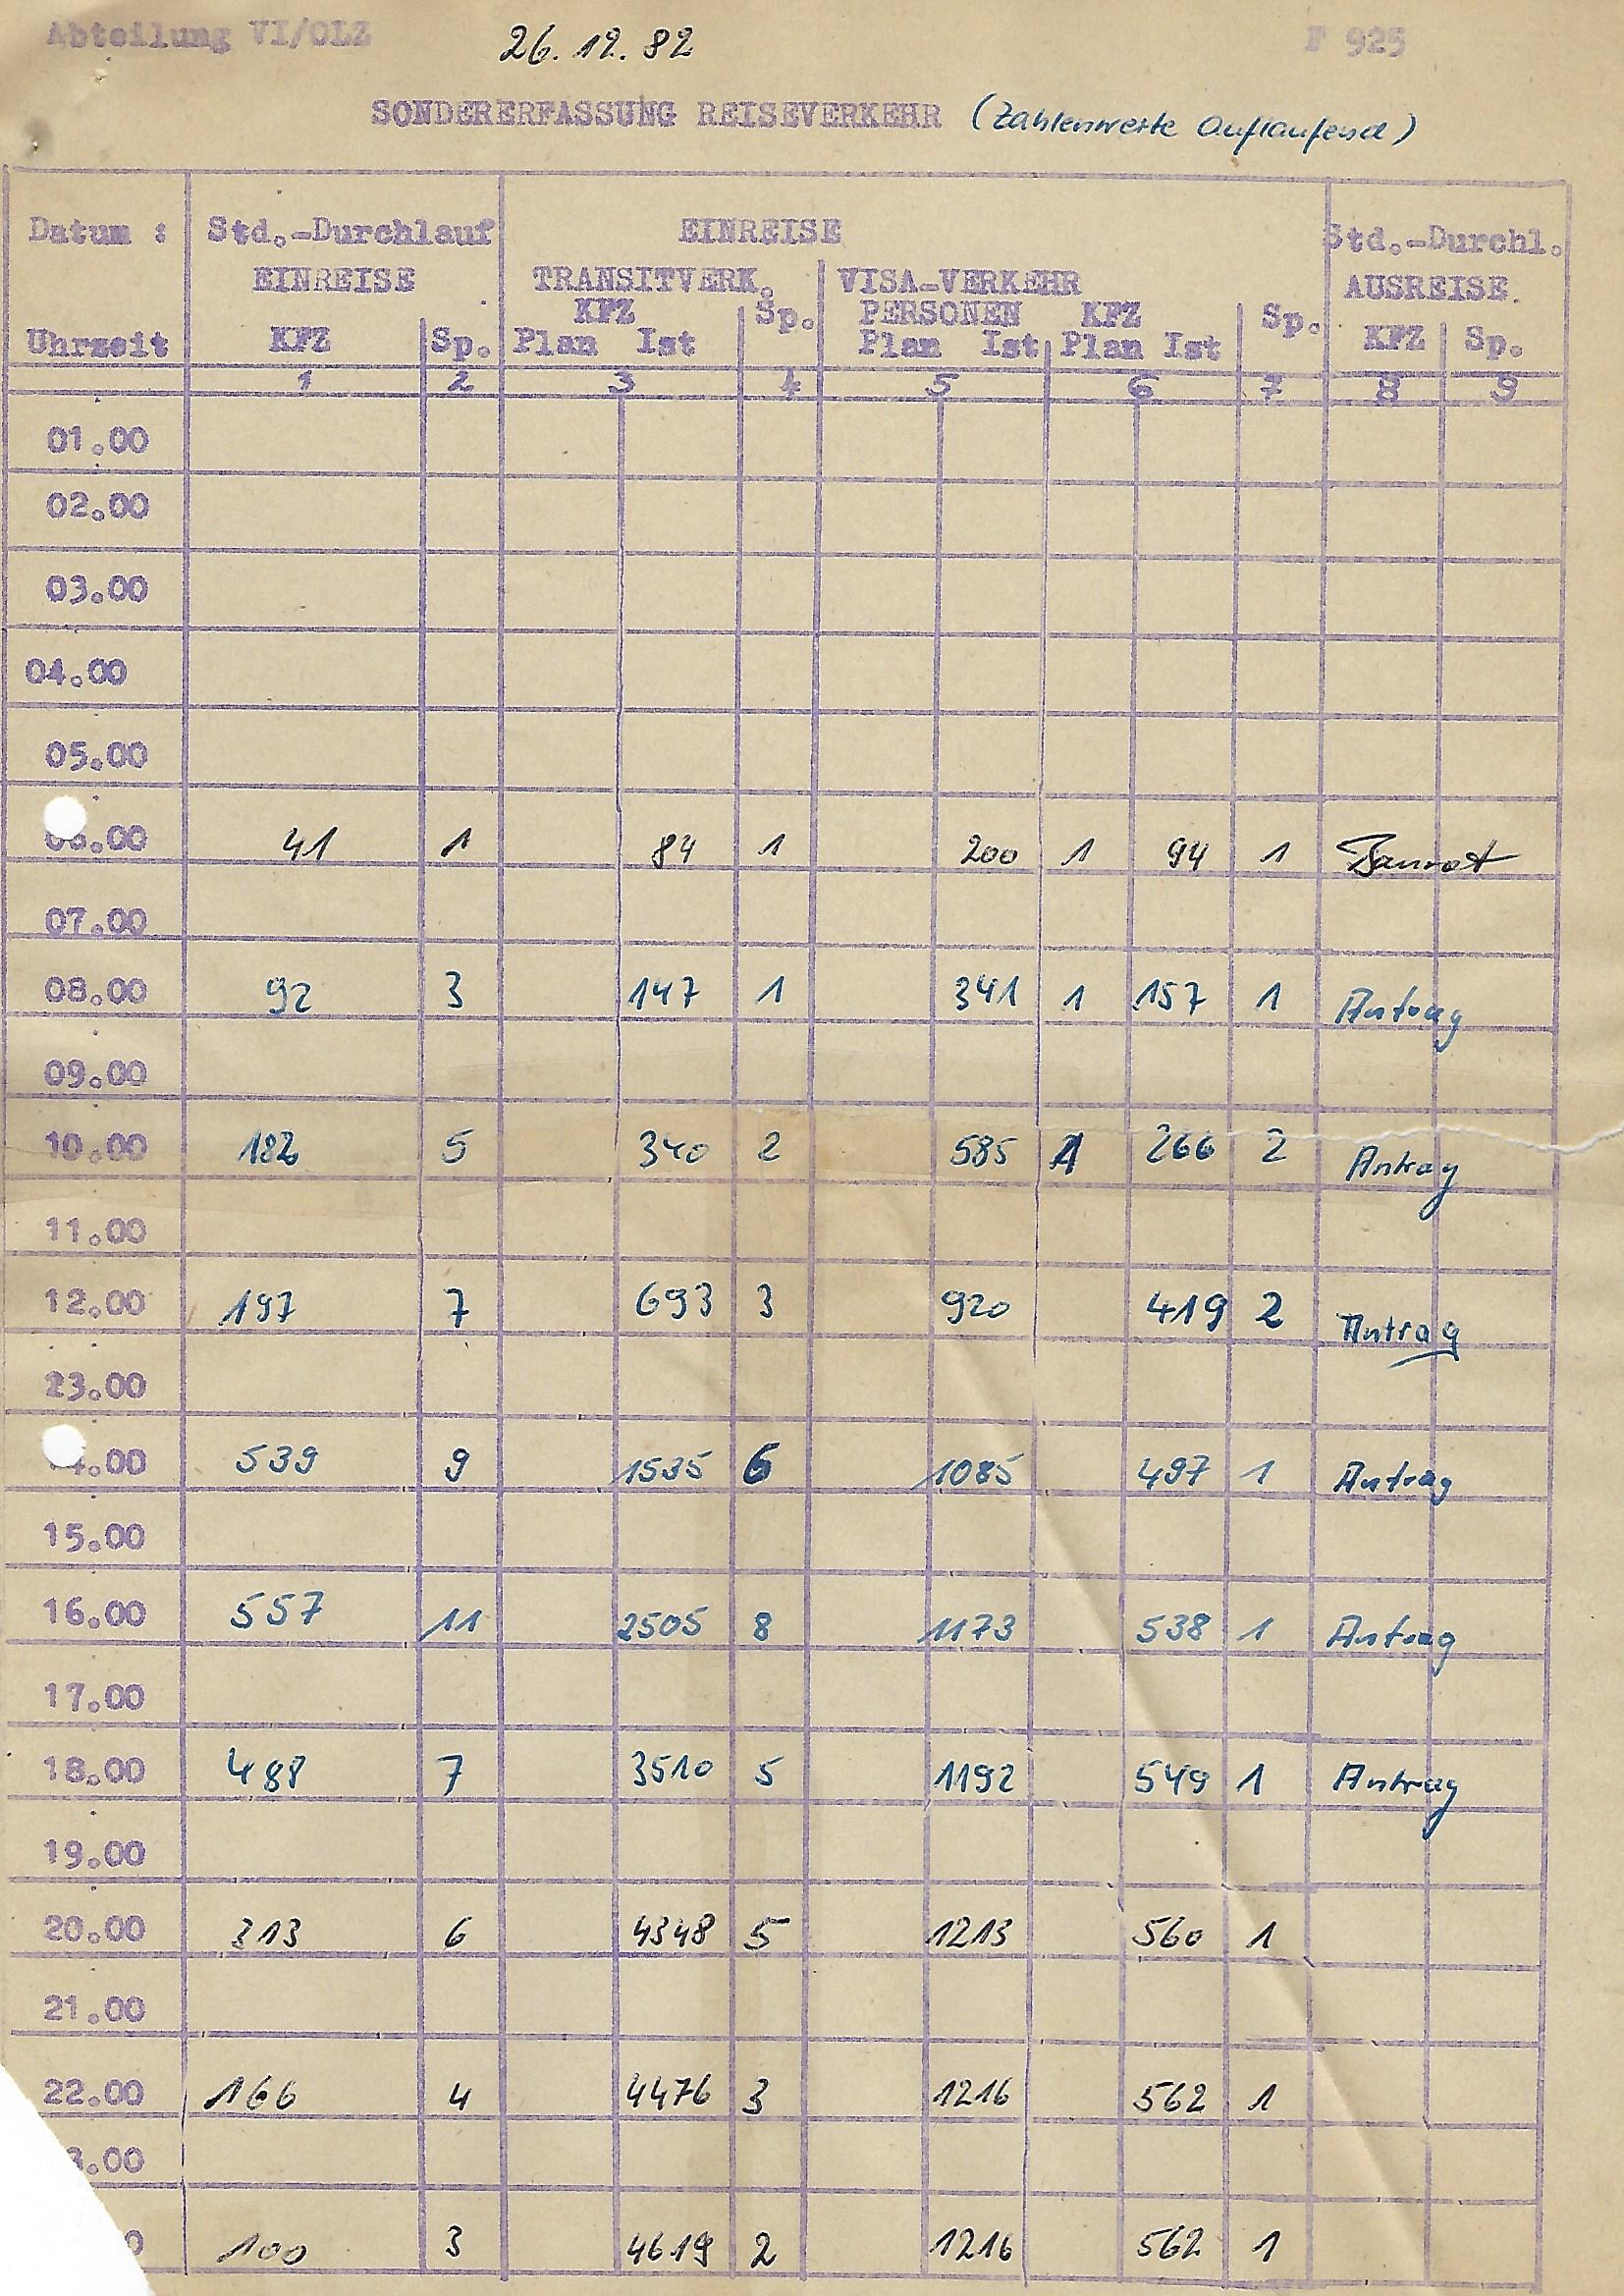 Abteilung VI/OLZ 26.12.82 F 925
SONDERERFASSUNG REISEVERKEHR (Zahlenwerte Auflaufend)
Datum : Std.-Durchlauf EINREISE Std.-Durchl.
EINREISE TRANSITVERK. VISA-VERKEHR AUSREISE.
KFZ Sp. PERSONEN KFZ Sp.
Uhrzeit KFZ Sp. Plan Ist Plan Ist Plan Ist KFZ Sp.
1 2 3 4 5 6 7 8 9
01.00
02.00
03.00
04.00
05.00
06.00 41 1 84 1 200 1 94 1
07.00
08.00 92 3 147 1 341 1 157 1 Antrag
09.00
10.00 182 5 340 2 585 1 266 2 Antrag
11.00
12.00 197 7 693 3 920 419 2 Antrag
23.00
4.00 539 9 1535 6 1085 497 1 Antrag
15.00
16.00 557 11 2505 8 1173 538 1 Antrag
17.00
18.00 488 7 3510 5 1192 549 1 Antrag
19.00
20.00 313 6 4348 5 1213 560 1
21.00
22.00 166 4 4476 3 1216 562 1
3.00
0 100 3 4619 2 1216 562 1